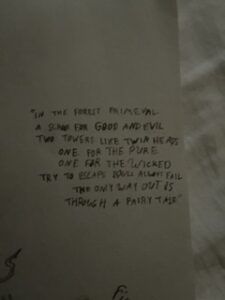 "IN THE FOREST PRIMEVAL
A SCHOOL FOR GOOD AND EVIL
TWO TOWERS LIKE TWIN HEADS
ONE FOR THE PURE
ONE FOR THE WICKED
TRY TO ESCAPE YOU'LL ALWAYS FAIL
THE ONLY WAY OUT IS
THROUGH A FAIRY TALE"